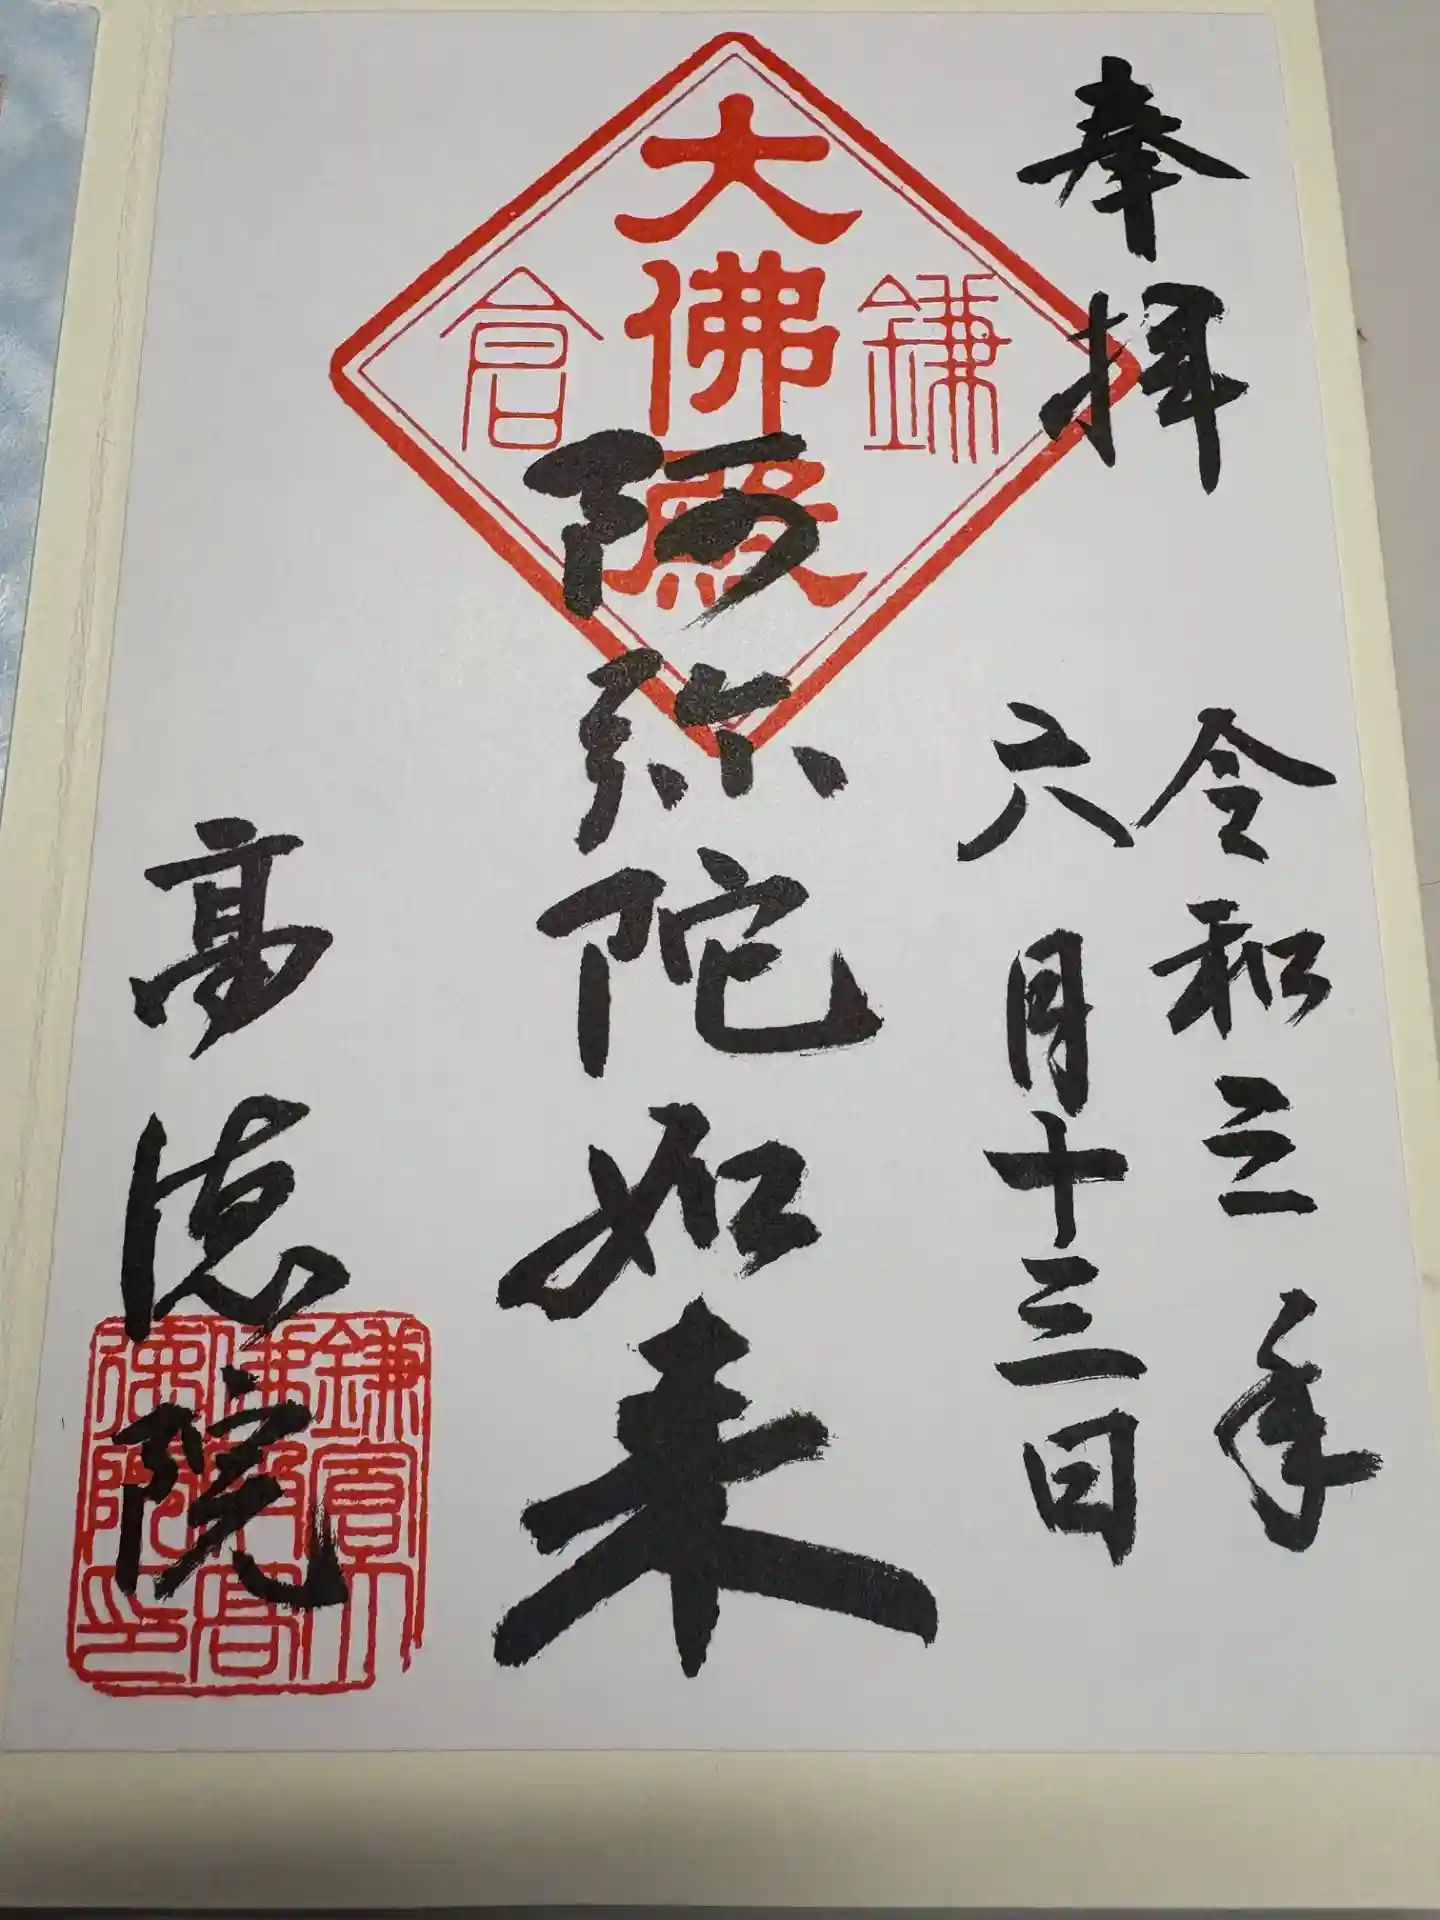 奉拝
令和三年
六月十三日
鎌倉
大佛殿
阿弥陀如来
高徳院
鎌倉大
佛殿高
徳院印